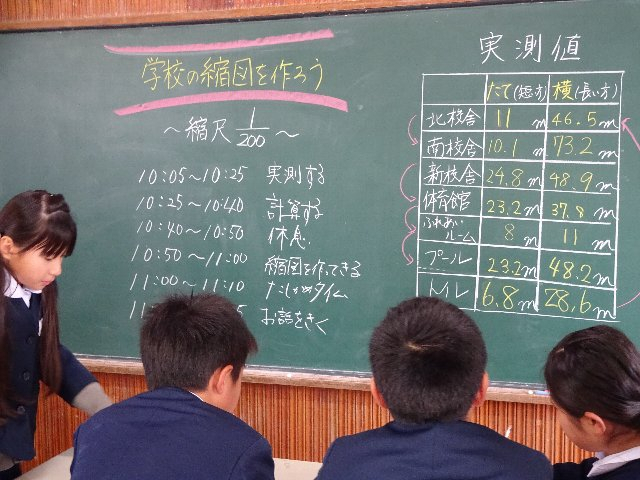 学校の縮図を作ろう
～縮尺 1/200 ～
10:05～10:25 実測する
10:25～10:40 計算する
10:40～10:50 休息
10:50～11:00 縮図を作ってきる
11:00～11:10 たしかめタイム
お話をきく
実測値
たて(短い方) 横(長い方)
北校舎 11 m 46.5 m
南校舎 10.1 m 73.2 m
新校舎 24.8 m 48.9 m
体育館 23.2 m 37.8 m
ふれあいルーム 8 m 11 m
プール 23.2 m 48.2 m
トイレ 6.8 m 28.6 m